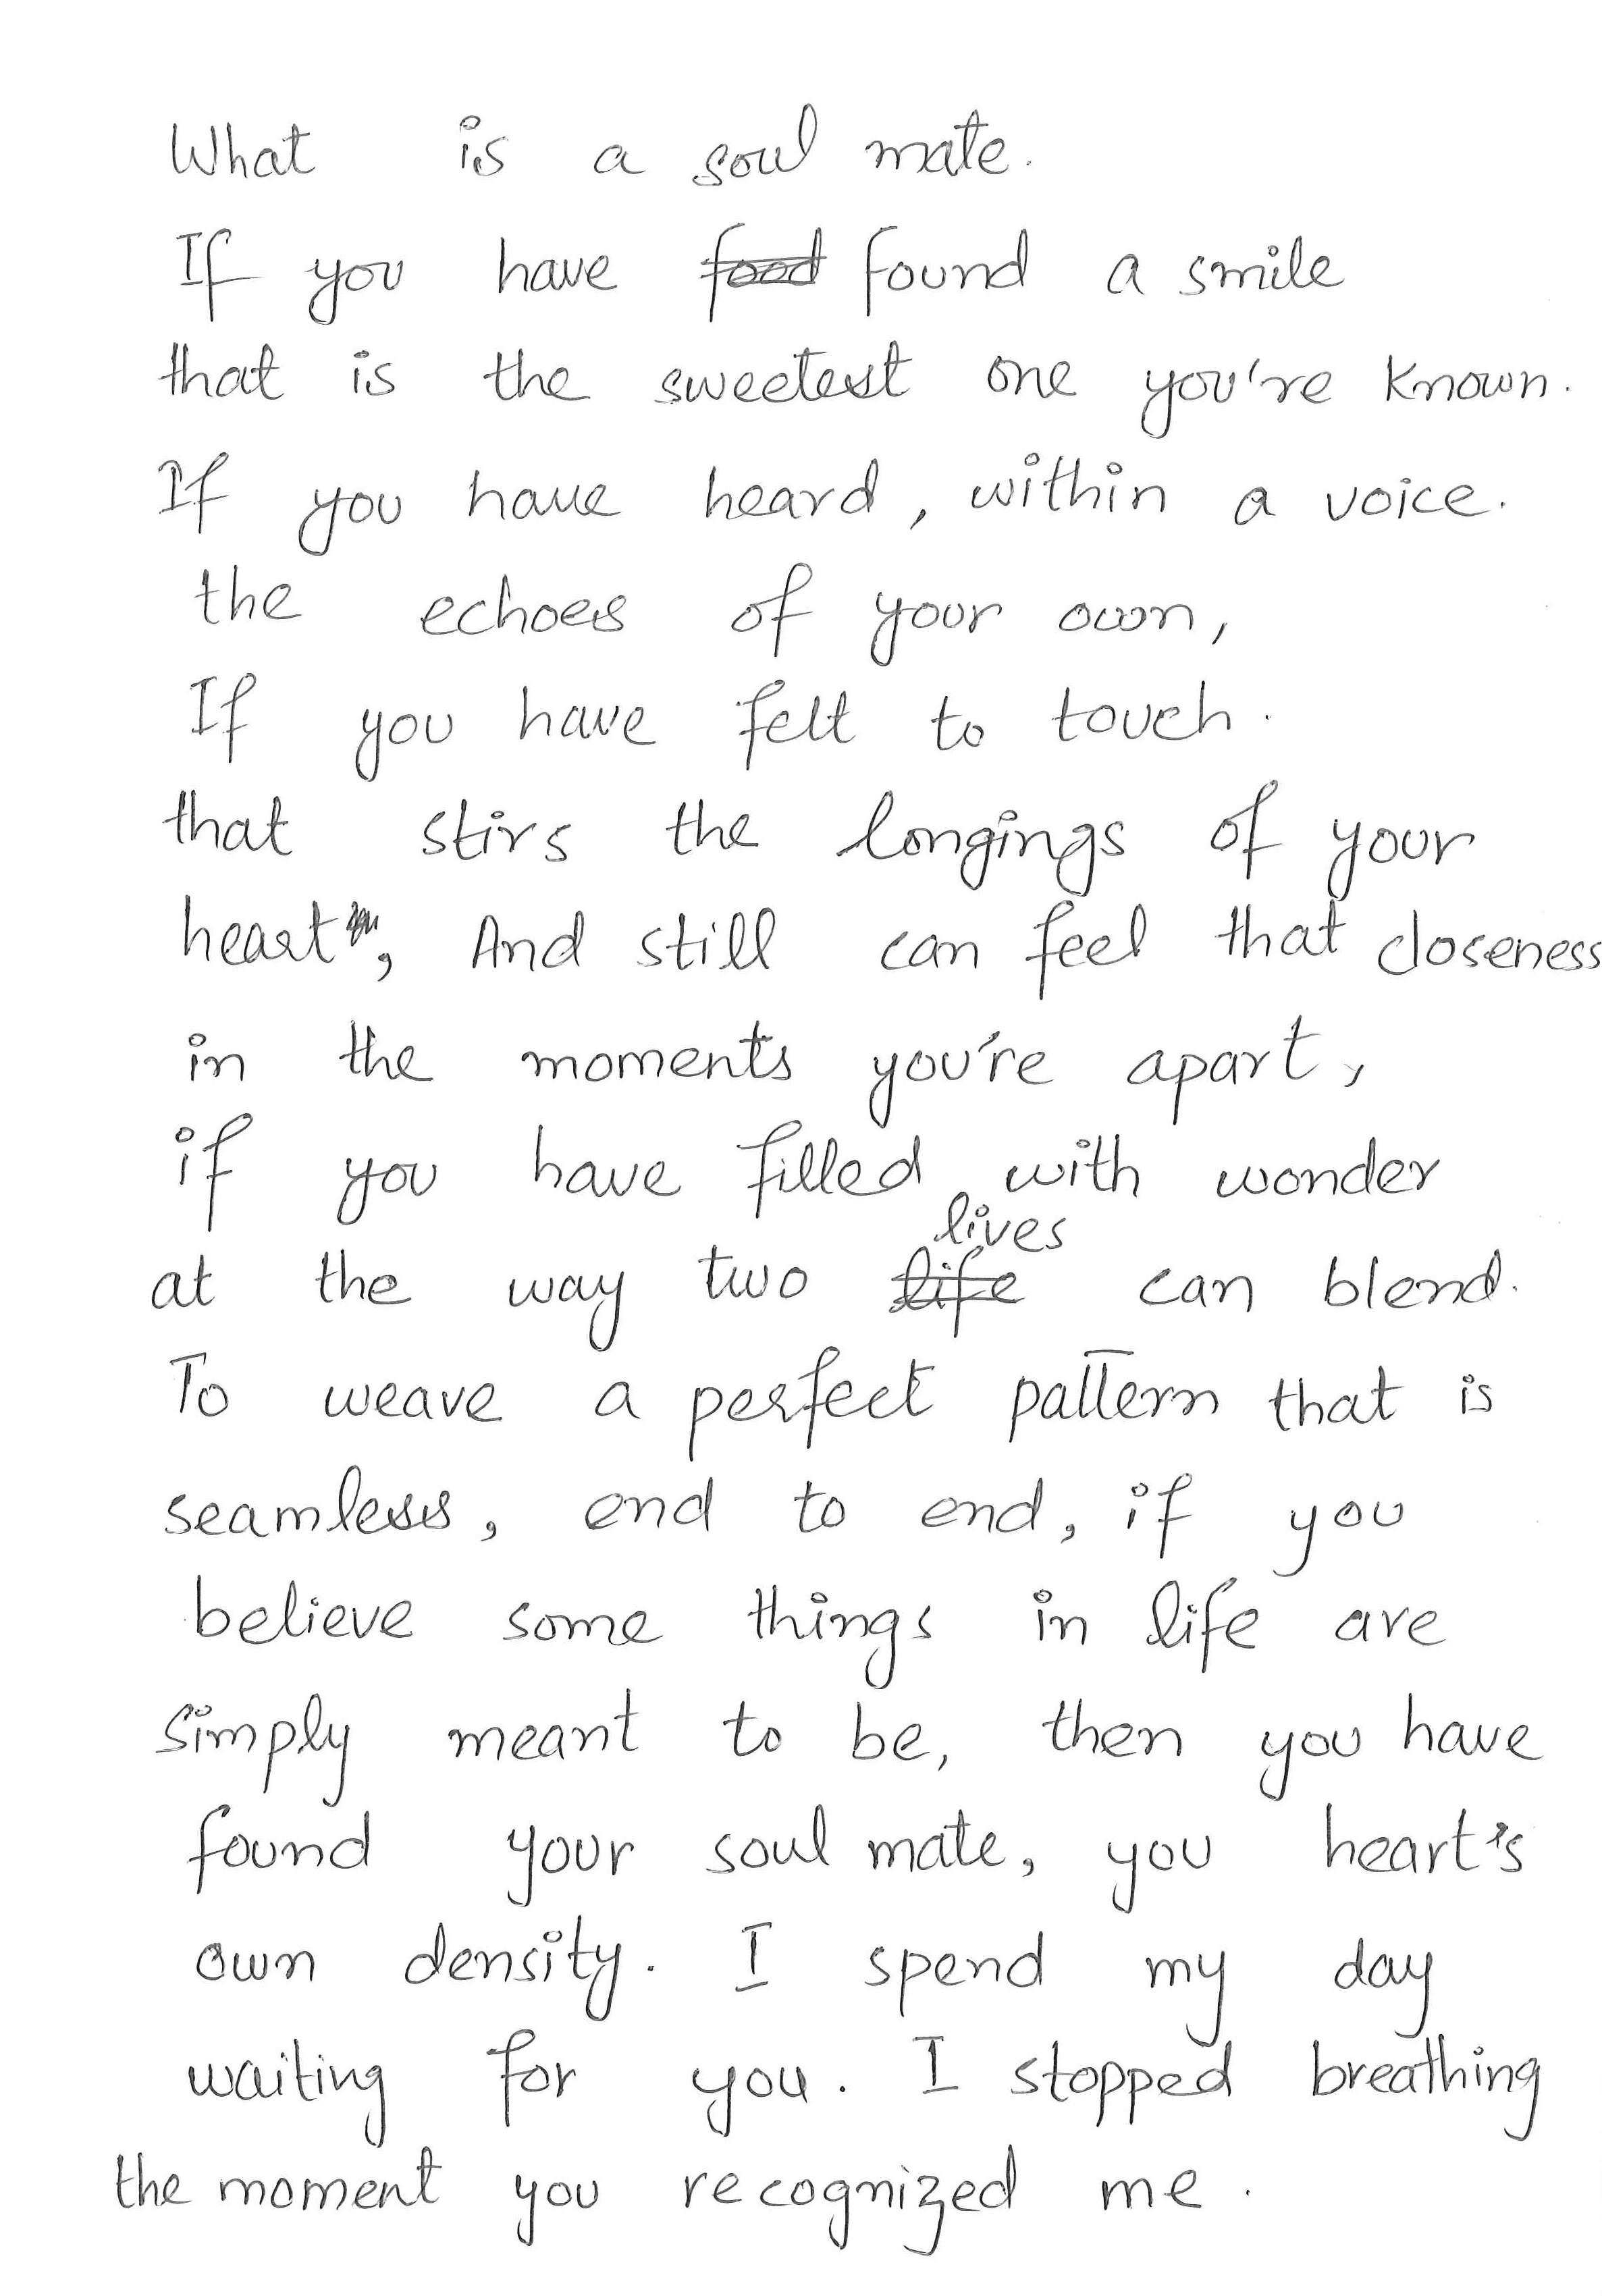 What is a soul mate.
If you have food found a smile
that is the sweetest one you're known.
If you have heard, within a voice.
the echoes of your own,
If you have felt to touch.
that stirs the longings of your
heart, And still can feel that closeness
in the moments you're apart,
if you have filled with wonder
lives
at the way two life can blend.
To weave a perfect pattern that is
seamless, end to end, if you
believe some things in life are
simply meant to be, then you have
found your soul mate, you heart's
own density. I spend my day
waiting for you. I stopped breathing
the moment you recognized me.